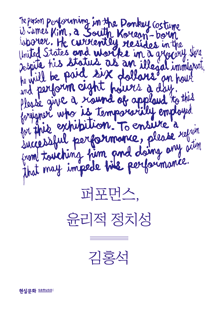 The person performing in the Donkey costume
is James Kim, a South Korean-born
laborer. He currently resides in the
United States and works in a grocery store
despite his status as an illegal immigrant.
He will be paid six dollars an hour
and perform eight hours a day.
Please give a round of applaud to this
foreigner who is temporarily employed
for this exhibition. To ensure a
successful performance, please refrain
from touching him and doing any action
that may impede his performance.
퍼포먼스,
윤리적 정치성
김홍석
현실문화